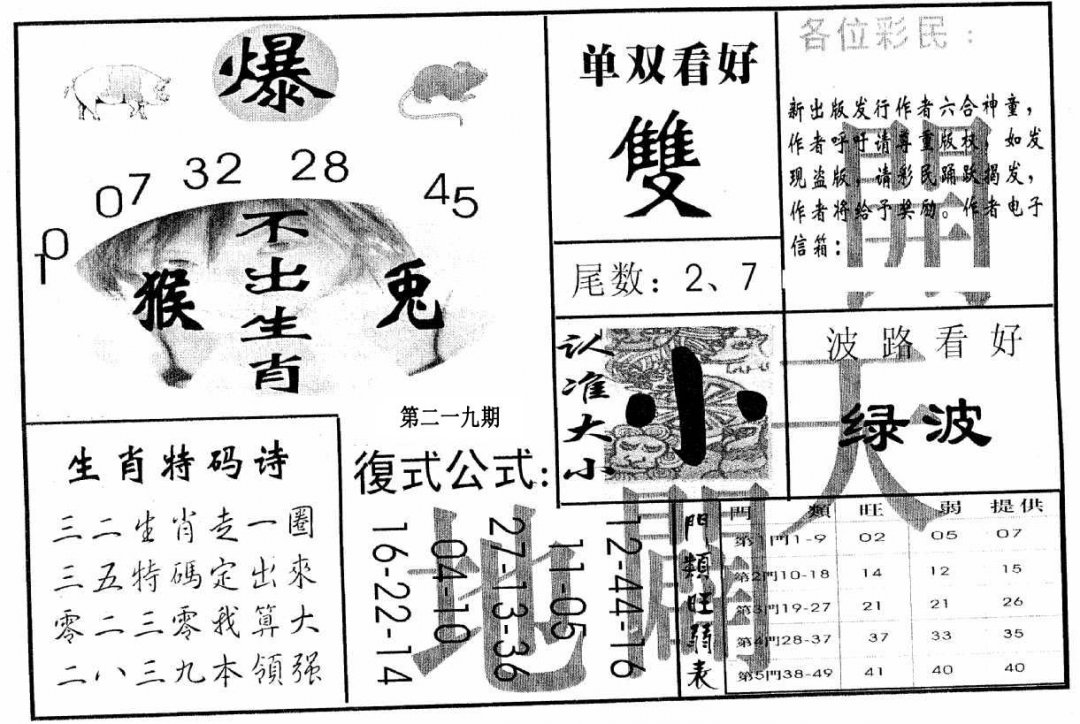 爆
10 07 32 28 45
不出生肖
猴 兎
第二一九期
单双看好
雙
尾数：2、7
各位彩民：
新出版发行作者六合神童，
作者呼吁请尊重版权，如发
现盗版，请彩民踊跃揭发，
作者将给予奖励。作者电子
信箱：
认准大小
小
波路看好
绿波
開天
地闢
生肖特码诗
三二生肖走一圈
三五特碼定出來
零二三零我算大
二八三九本領强
復式公式：
16-22-14
04-10
27-13-36
11-05
12-44-16
門類旺弱表
門類 旺 弱 提供
第1門1-9 02 05 07
第2門10-18 14 12 15
第3門19-27 21 21 26
第4門28-37 37 33 35
第5門38-49 41 40 40